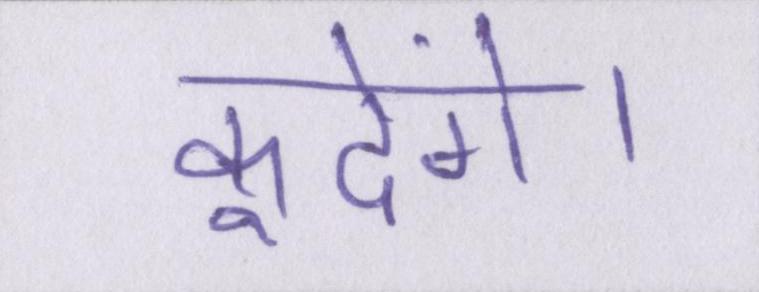 कूदेंगे।